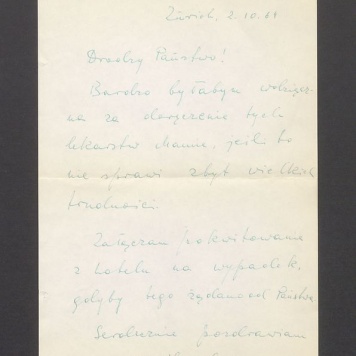 Zürich, 2.10.61
Drodzy Państwo!
Bardzo byłabym wdzięcz
na za doręczenie tych
lekarstw Mamie, jeśli to
nie sprawi zbyt wielkich
trudności.
Załączam pokwitowanie
z hotelu na wypadek,
gdyby tego żądano od Państwa
Serdecznie pozdrawiam